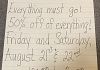 Everything must go!
50% off of everything!
Friday and Saturday,
August 21st & 22nd